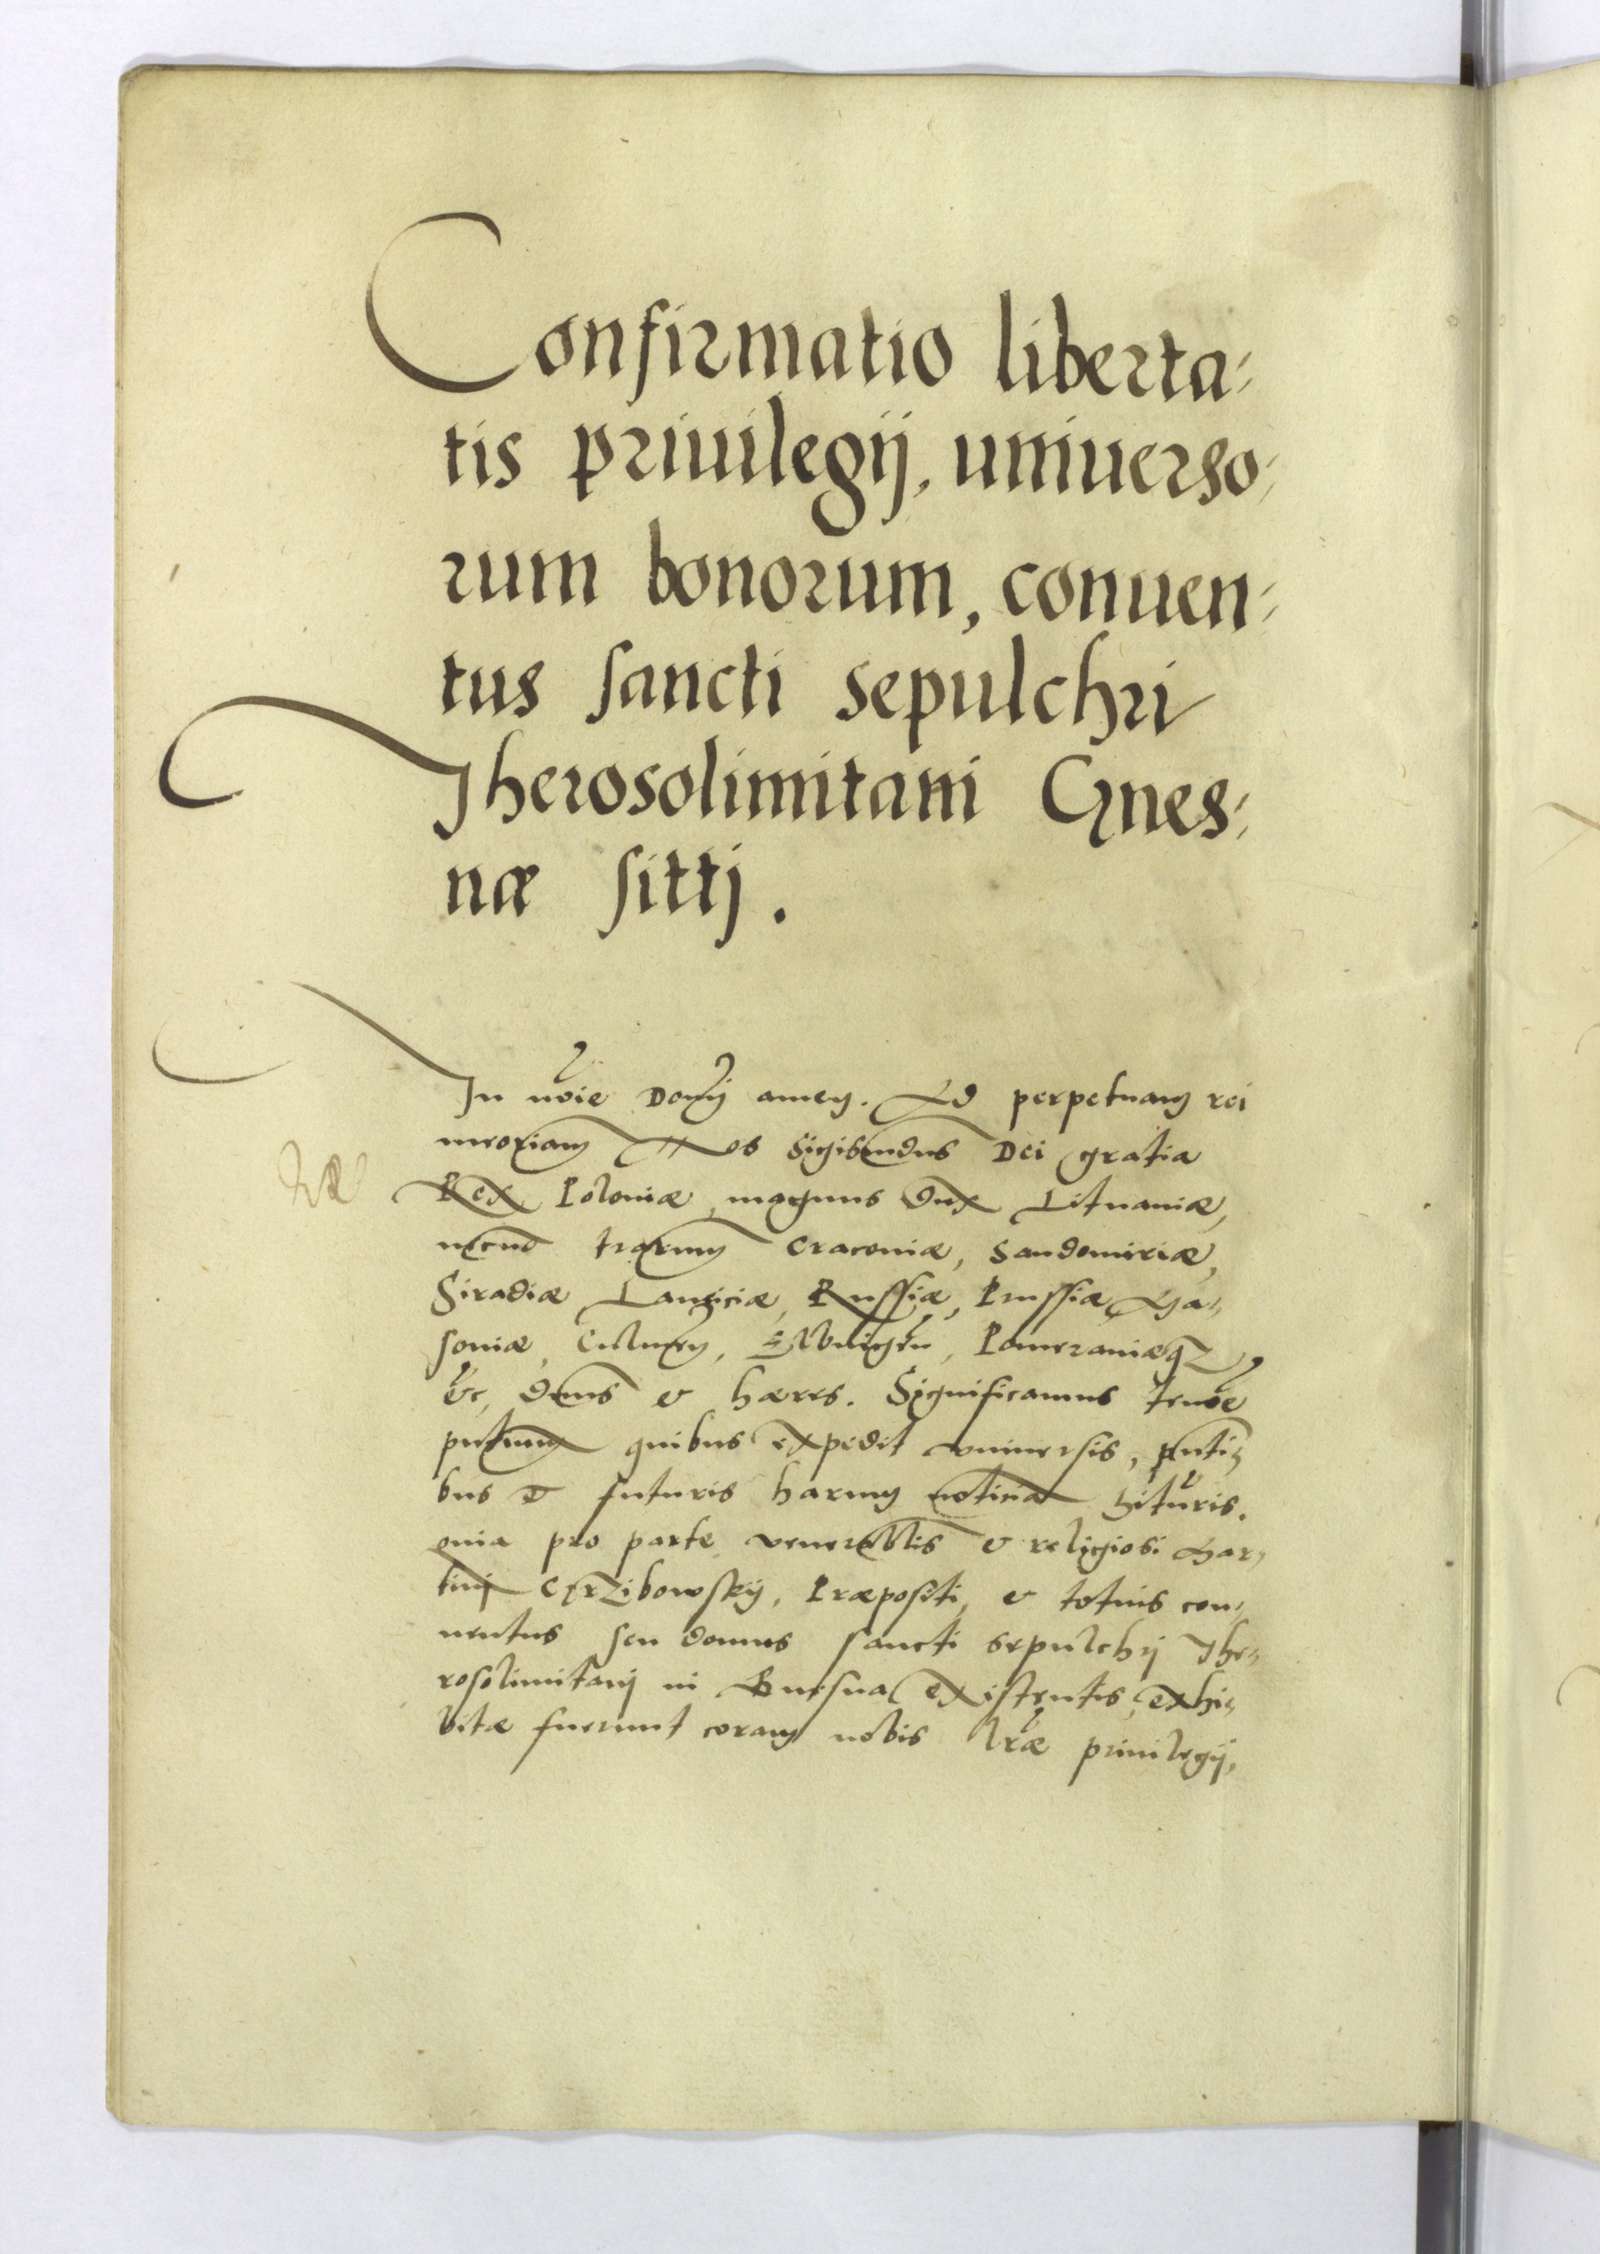 Confirmatio liberta-
tis priuilegij, uniuerso-
rum bonorum, conuen-
tus sancti sepulchri
Iherosolimitani Gnes-
næ sitij.
In noīe Domī amen. Ad perpetuam rei
meoriam Nos Sigismūdus Dei gratia
Rex Poloniæ, magnus dux Lituaniæ,
necnō trarum Craconiæ, Sandomiriæ,
Siradiæ Lanziciæ, Russiæ, Prussiæ Ma-
souiæ, Culmen, Elbingēn, Pomeraniæq
etc, dnus et hæres. Significamus tenoē
pntium quibus expedit vniuersis, pnti-
bus et futuris harum noticiā hituris.
quia pro parte venerablis et religiosi Mar-
tini Grzibowskij, Præpositi, et totius con-
uentus seu domus sancti sepulchrj Ihe-
rosolimitanj in Gnesna existentis, exhi-
bitæ fuerunt coram nobis lræ priuilegij,